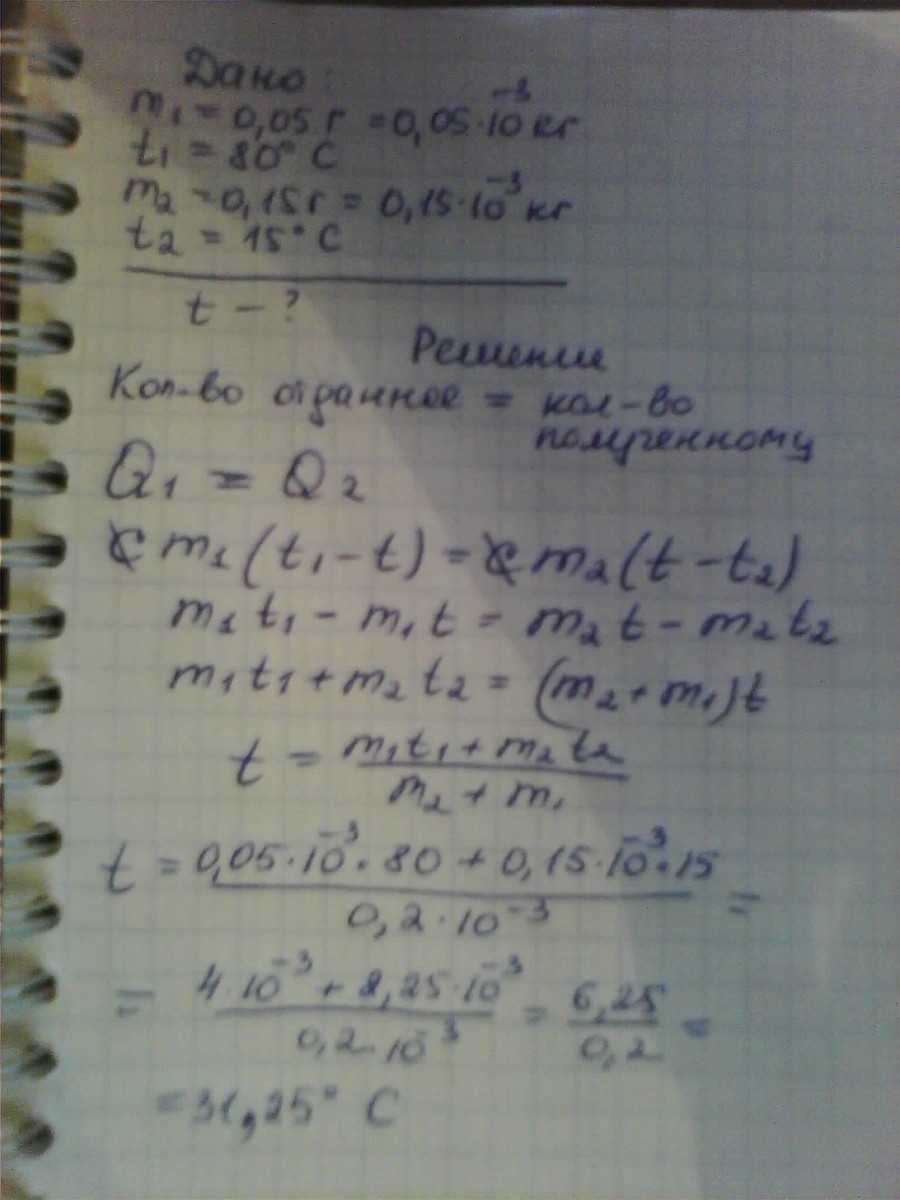 Дано:
m₁ = 0,05 г = 0,05·10⁻³ кг
t₁ = 80° C
m₂ = 0,15 г = 0,15·10⁻³ кг
t₂ = 15° C
t - ?
Решение
Кол-во отданное = кол-во
полученному
Q₁ = Q₂
c m₁ (t₁ - t) = c m₂ (t - t₂)
m₁ t₁ - m₁ t = m₂ t - m₂ t₂
m₁ t₁ + m₂ t₂ = (m₂ + m₁) t
t = (m₁ t₁ + m₂ t₂) / (m₂ + m₁)
t = (0,05·10⁻³·80 + 0,15·10⁻³·15) / (0,2·10⁻³) =
= (4·10⁻³ + 2,25·10⁻³) / (0,2·10⁻³) = 6,25 / 0,2 =
= 31,25° C